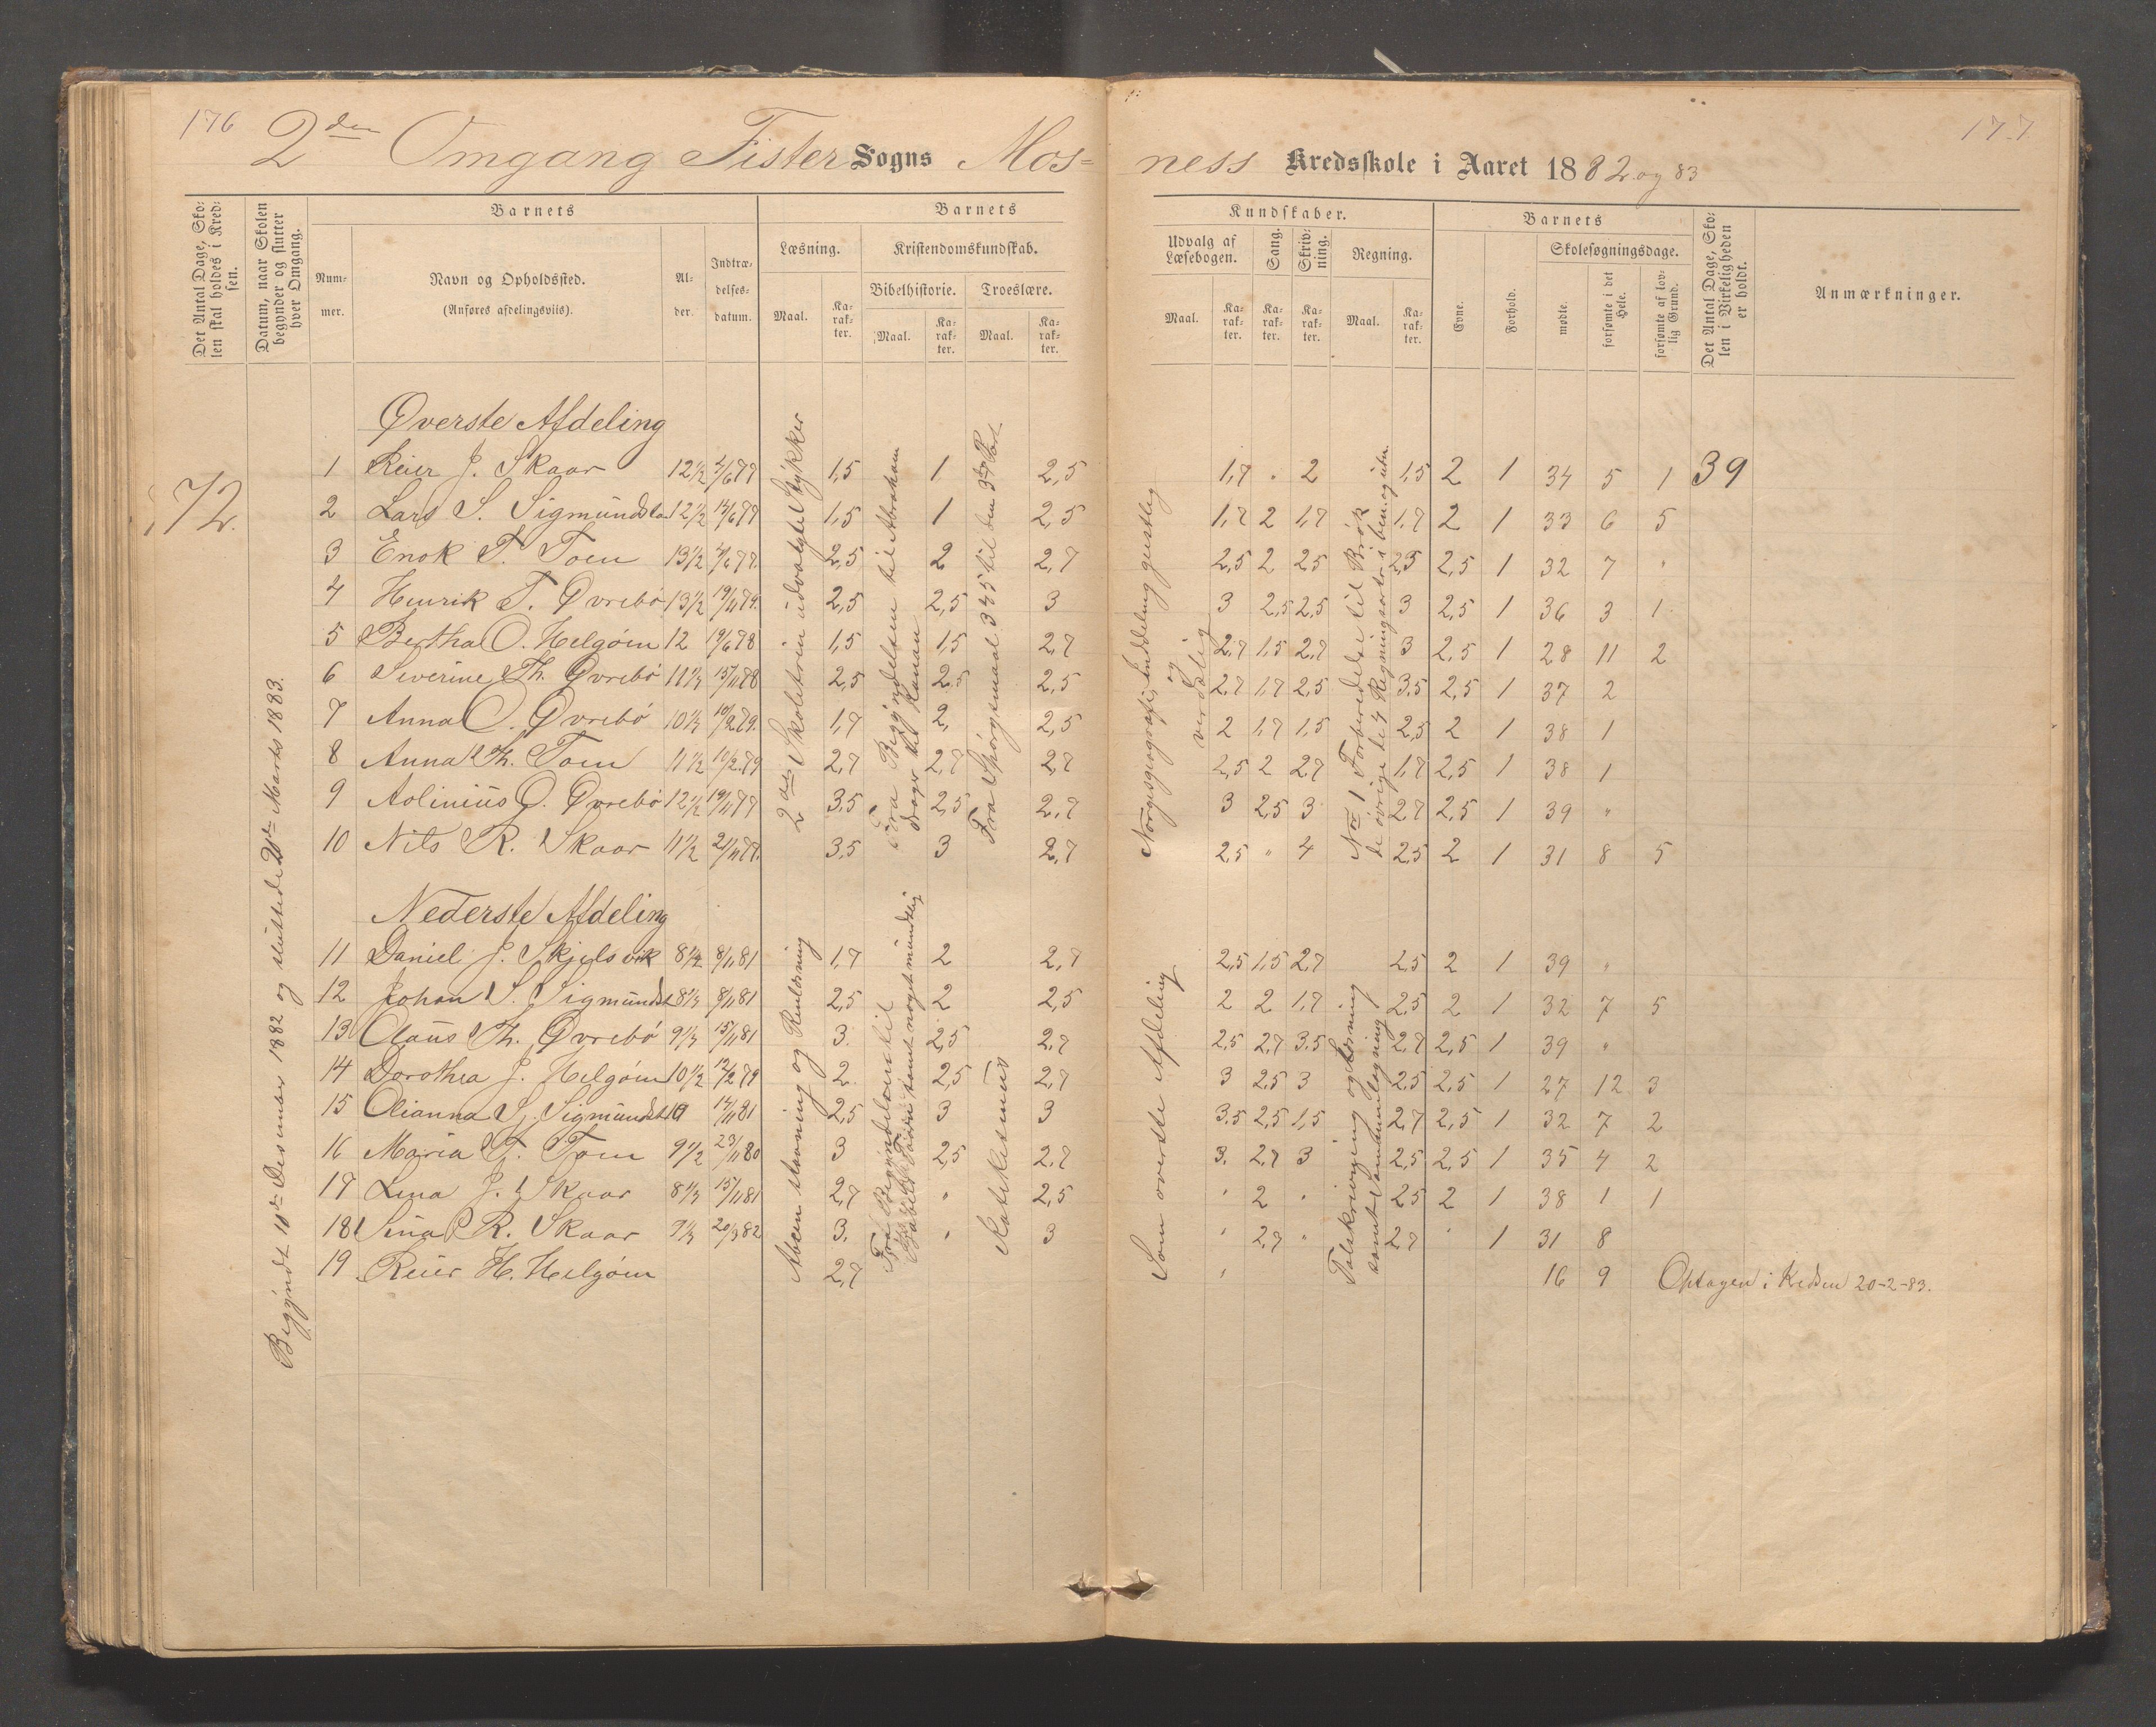 176
177
2den Omgang Fister Sogns Mosness Kredsskole i Aaret 1882 og 83
Det Antal Dage, Skolen skal holdes i Kredsen.
Datum, naar Skolen begynder og slutter hver Omgang.
Barnets
Nummer.
Navn og Opholdssted.
(Anføres afdelingsviis).
Alder.
Indtrædelsesdatum.
Barnets
Læsning.
Maal.
Karakter.
Kristendomskundskab.
Bibelhistorie.
Maal.
Karakter.
Troeslære.
Maal.
Karakter.
Kundskaber.
Udvalg af Læsebogen.
Maal.
Karakter.
Sang.
Karakter.
Skrivning.
Karakter.
Regning.
Maal.
Karakter.
Barnets
Evne.
Forhold.
Skolesøgningsdage.
mødte.
forsømte i det Hele.
forsømte af lovlig Grund.
Det Antal Dage, Skolen i Virkeligheden er holdt.
Anmærkninger.
72.
Begyndt 11te Desember 1882 og sluttede 20de Marts 1883.
Øverste Afdeling
2den Skoletrin udvalgte Stykker
Fra Begyndelsen til Abraham drager til Kanan
Fra Spörgsmaal 345 til den 3die Part
Norgesgeografi, Inddeling geistlig og verdslig
No 1 Forberedelse til Brøk de övrige de 4 Regningsarter i ben. og ubn.
1 Reier J. Skaar 12 1/2 4/6 77 1,5 1 2,5 1,7 " 2 1,5 2 1 34 5 1 39
2 Lars S. Sigmundsta 12 1/2 14/6 77 1,5 1 2,5 1,7 2 1,7 1,7 2 1 33 6 5
3 Enok T. Toen 13 1/2 4/6 77. 2,5 2 2,7 2,5 2 2,5 2,5 2,5 1 32 7 "
4 Henrik T. Øvrebö 13 1/2 19/11 74. 2,5 2,5 3 3 2,5 2,5 3 2,5 1 36 3 1
5 Bertha O. Helgöen 12 19/6 78 1,5 1,5 2,7 2,7 1,5 2,7 3 2,5 1 28 11 2
6 Siverine Th. Øvrebö 11 1/3 15/11 78 2,5 2,5 2,5 2,7 1,7 2,5 3,5 2,5 1 37 2
7 Anna O. Øvrebö 10 1/3 10/2 79. 1,7 2, 2,5 2 1,7 1,5 2,5 2 1 38 1
8 Anna Th. Toen 11 1/2 10/2 79 2,7 2,7 2,7 2,5 2 2,7 1,7 2,5 1 38 1
9 Aolinius O. Øvrebö 12 1/2 19/11 77 3,5 2,5 2,7 3 2,5 3 2,7 2,5 1 39 "
10 Nils R. Skaar 11 1/2 21/11 77. 3,5 3 2,7 2,5 " 4 2,5 2 1 31 8 5
Nederste Afdeling
Abcen stavning og Renlæsning
Fra Begyndelsen til samt noget mündtlig
Katekismus
Som øverste Afdeling
Talskrivning og læsning samt Sammenlægning
11 Daniel J. Skjelsvik 8 1/2 8/11 81 1,7 2 2,7 2,5 1,5 2,7 2,5 2 1 39 "
12 Johan S. Sigmundst 8 1/3 8/11 81 2,5 2 2,5 2 2 1,7 2,5 2 1 32 7 5
13 Olaus Th. Øvrebö 9 1/3 15/11 81 3. 2,5 2,7 2,5 2,7 3,5 2,7 2,5 1 39 "
14 Dorothea J. Helgöen 10 1/2 12/2 79 2. 2,5 2,7 3 2,5 3 2,5 2,5 1 27 12 3
15 Olianna S. Sigmundst 10 14/11 81 2,5 3 3 3,5 2,5 1,5 2,7 2,5 1 32 7 2
16 Maria T. Toen 9 1/2 23/11 80 3 2,5 2,7 3. 2,7 3 2,5 2,5 1 35 4 2
17 Lina J. Skaar 8 1/3 15/11 81 2,7 " 2,5 " 2 " 2,5 2 1 38 1 1
18 Sina R. Skaar 7 1/3 20/3 82 3. " 3 " 2,7 " 2,7 " 1 31 8
19 Reier H. Helgöen 2,7 " 16 9 Optagen i Kredsen 20-2-83.